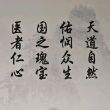 天道自然
佑悯众生
国之瑰宝
医者仁心